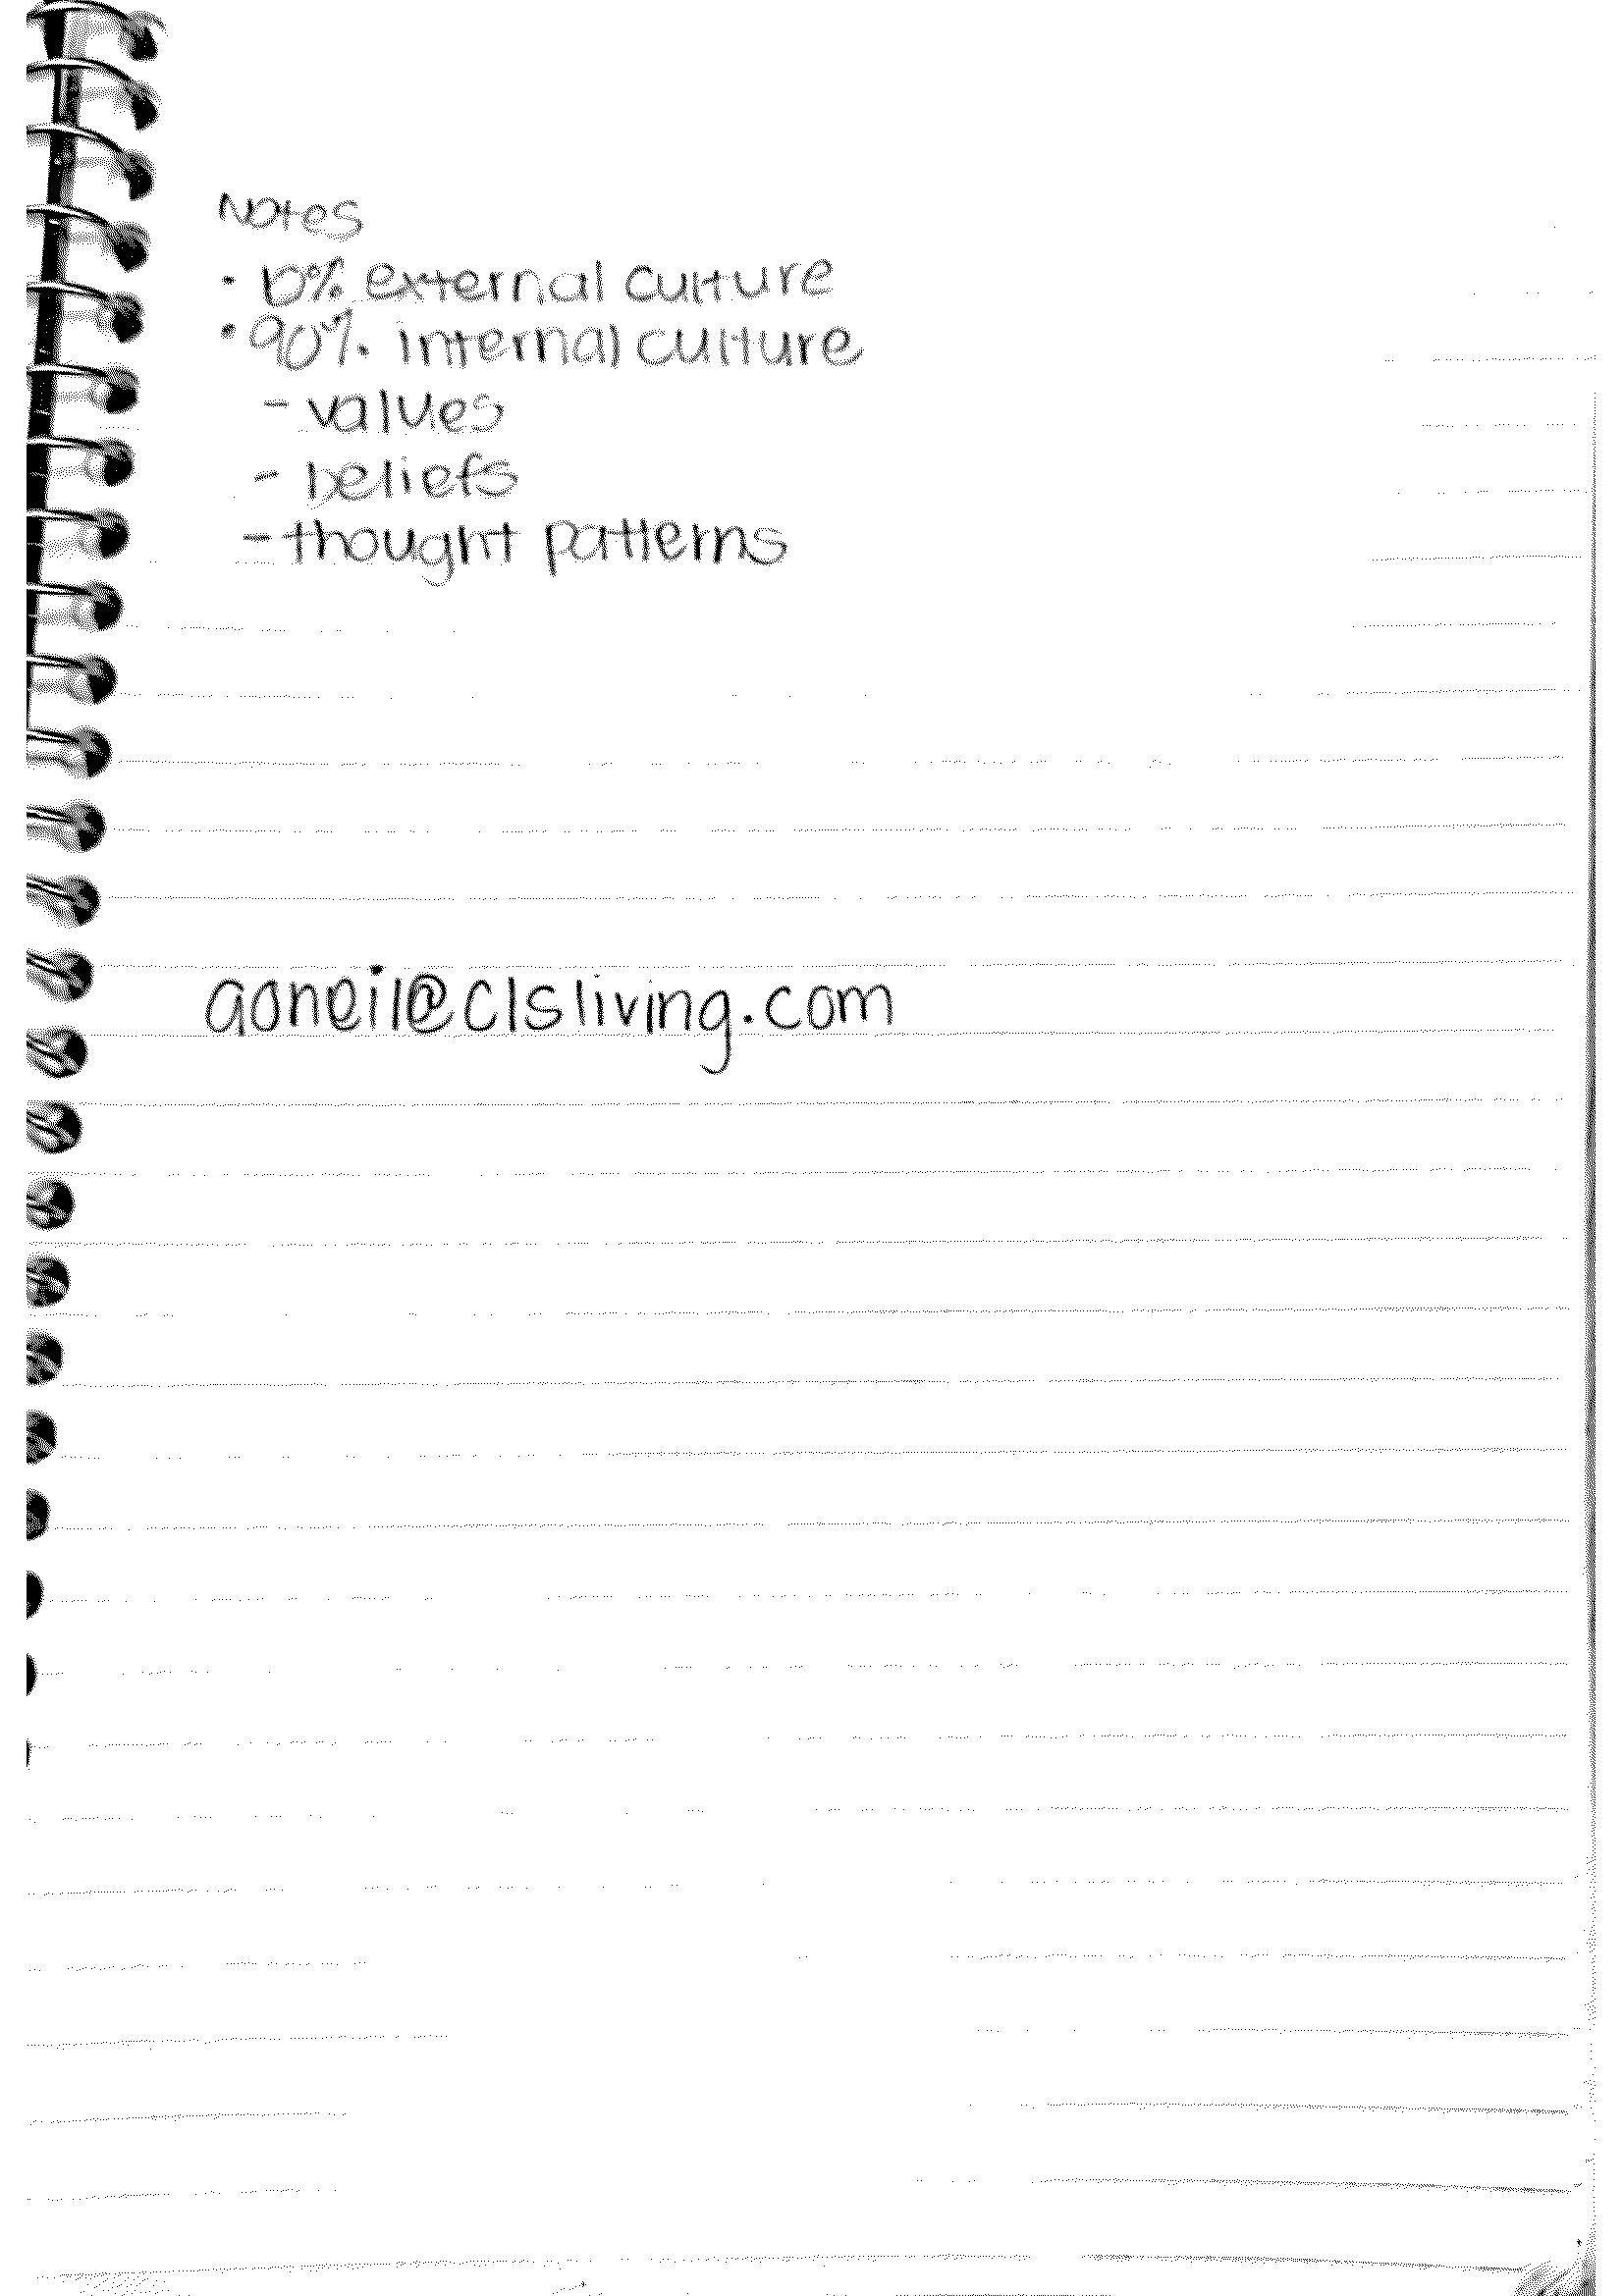 Notes
• 10% external culture
• 90% internal culture
- values
- beliefs
- thought patterns
aoneil@clsliving.com